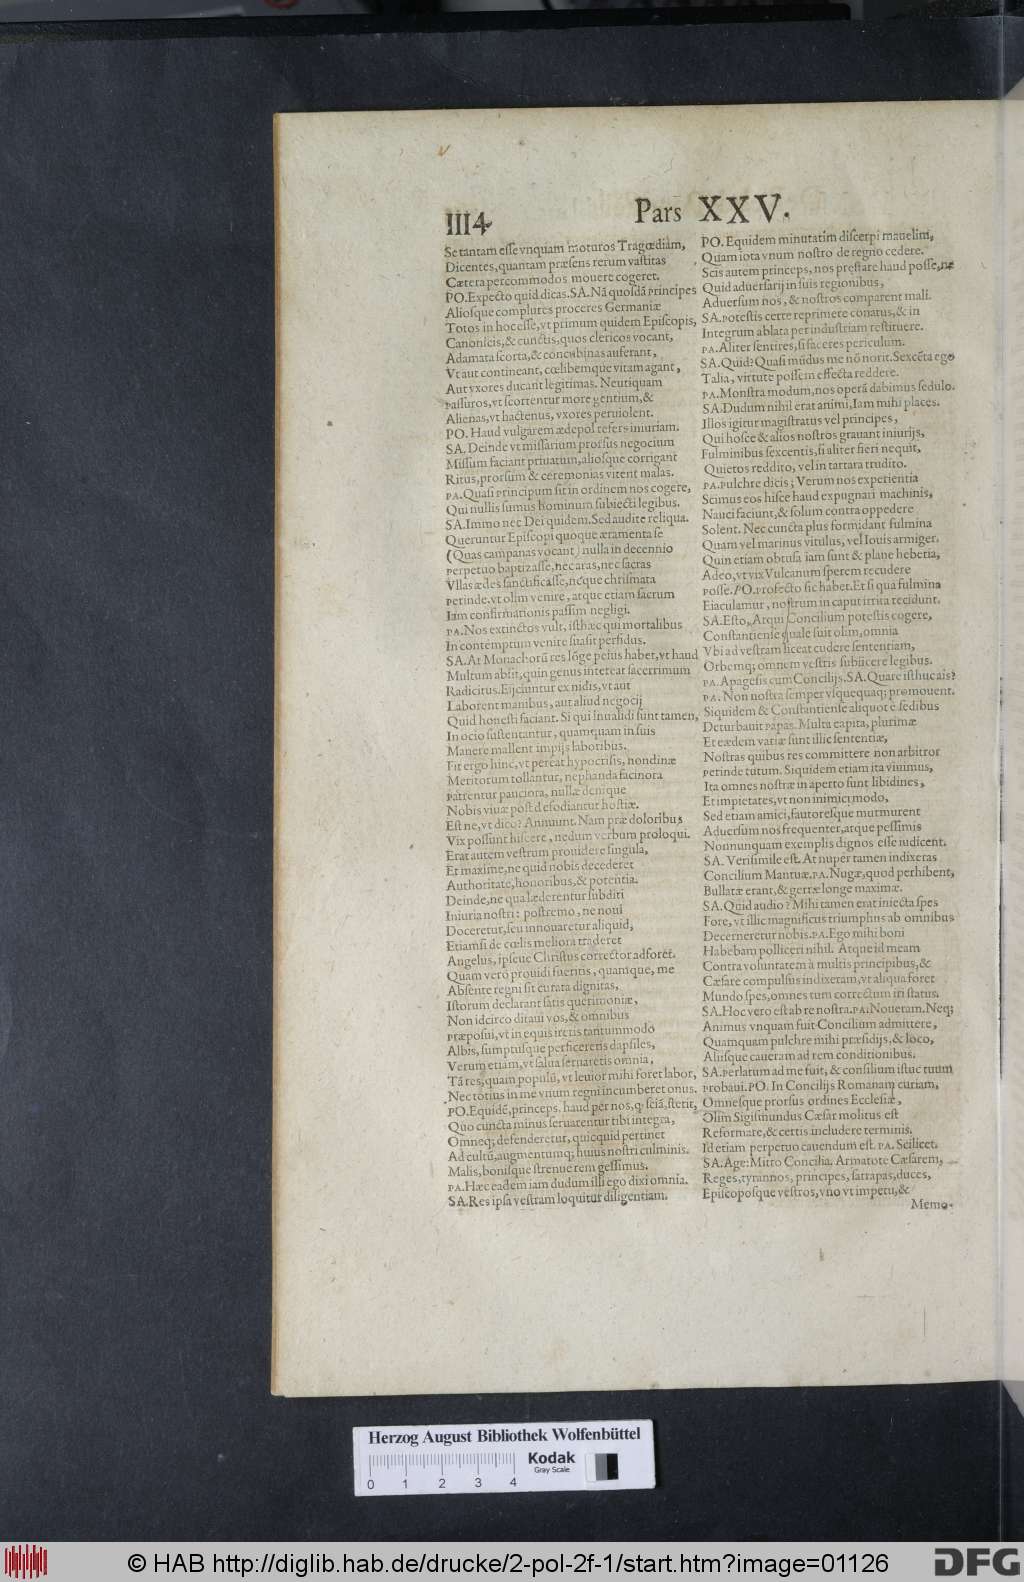 1114
Pars XXV.
Se tantam eſſe vnquam moturos Tragœdiam,
Dicentes, quantam præſens rerum vaſtitas
Cætera percommodos mouere cogeret.
PO. Expecto quid dicas. SA. Nã quoſdã Principes
Alioſque complures proceres Germaniæ
Totos in hoc eſſe, vt primum quidem Epiſcopis,
Canonicis, & cunctis, quos clericos vocant,
Adamata ſcorta, & concubinas auferant,
Vt aut contineant, cœlibemque vitam agant,
Aut vxores ducant legitimas. Neutiquam
Paſſuros, vt ſcortentur more gentium, &
Alienas, vt hactenus, vxores peruiolent.
PO. Haud vulgarem ædepol refers iniuriam.
SA. Deinde vt miſſarium prorſus negocium
Miſſum faciant priuatum, alioſque corrigant
Ritus, prorſum & ceremonias vitent malas.
PA. Quaſi Principum ſit in ordinem nos cogere,
Qui nullis ſumus hominum ſubiecti legibus.
SA. Immo nec Dei quidem. Sed audite reliqua.
Queruntur Epiſcopi quoque æramenta ſe
(Quas campanas vocant) nulla in decennio
Perpetuo baptizaſſe, nec aras, nec ſacras
Vllas ædes ſanctificaſſe, neque chriſmata
Perinde, vt olim venire, atque etiam ſacrum
Iam confirmationis paſſim negligi.
PA. Nos extinctos vult, iſthæc qui mortalibus
In contemptum venire ſuaſit perfidus.
SA. At Monachorũ res lõge peius habet, vt haud
Multum abſit, quin genus intereat ſacerrimum
Radicitus. Eijciuntur ex nidis, vt aut
Laborent manibus, aut aliud negocij
Quid honeſti faciant. Si qui inualidi ſunt tamen,
In ocio ſuſtentantur, quamquam in ſuis
Manere mallent impijs laboribus.
Fit ergo hinc, vt pereat hypocriſis, nondinæ
Meritorum tollantur, nephanda facinora
Patrentur pauciora, nullæ denique
Nobis viuæ poſt defodiantur hoſtiæ.
Eſt ne, vt dico? Annuunt. Nam præ doloribus
Vix poſſunt hiſcere, nedum verbum proloqui.
Erat autem veſtrum prouidere ſingula,
Et maxime, ne quid nobis decederet
Authoritate, honoribus, & potentia.
Deinde, ne qua læderentur ſubditi
Iniuria noſtri: poſtremo, ne noui
Doceretur, ſeu innouaretur aliquid,
Etiamſi de cœlis meliora traderet
Angelus, ipſeue Chriſtus corrector adforet.
Quam vero prouidi fueritis, quamque, me
Abſente regni ſit curata dignitas,
Iſtorum declarant ſatis querimoniæ,
Non idcirco ditaui vos, & omnibus
Præpoſui, vt in equis iretis tantummodo
Albis, ſumptuſque perficerens dapſiles,
Verum etiam, vt ſalua ſeruaretis omnia,
Tã res, quam populũ, vt leuior mihi foret labor,
Nec totius in me vnum regni incumberet onus.
PO. Equidẽ, princeps, haud per nos, q̃ ſciã, ſterit,
Quo cuncta minus ſeruarentur tibi integra,
Omneq; defenderetur, quicquid pertinet
Ad cultũ, augmentumq; huius noſtri culminis.
Malis, boniſque ſtrenue rem geſſimus.
PA. Hæc eadem iam dudum illi ego dixi omnia.
SA. Res ipſa veſtram loquitur diligentiam.
PO. Equidem minutatim diſcerpi mauelim,
Quam iota vnum noſtro de regno cedere.
Scis autem princeps, nos preſtare haud poſſe, ne
Quid aduerſarij in ſuis regionibus,
Aduerſum nos, & noſtros comparent mali.
SA. Poteſtis certe reprimere conatus, & in
Integrum ablata per induſtriam reſtituere.
PA. Aliter ſentires, ſi faceres periculum.
SA. Quid? Quaſi mũdus me nõ norit. Sexcẽta ego
Talia, virtute poſſem effecta reddere.
PA. Monſtra modum, nos operã dabimus ſedulo.
SA. Dudum nihil erat animi, Iam mihi places.
Illos igitur magiſtratus vel principes,
Qui hoſce & alios noſtros grauant iniurijs,
Fulminibus ſexcentis, ſi aliter fieri nequit,
Quietos reddito, vel in tartara trudito.
PA. Pulchre dicis; Verum nos experientia
Scimus eos hiſce haud expugnari machinis,
Nauci faciunt, & ſolum contra oppedere
Solent. Nec cuncta plus formidant fulmina
Quam vel marinus vitulus, vel Iouis armiger.
Quin etiam obtuſa iam ſunt & plane hebetia,
Adeo, vt vix Vulcanum ſperem recudere
Poſſe. PO. Profecto ſic habet. Et ſi qua fulmina
Eiaculamur, noſtrum in caput irrita recidunt.
SA. Eſto, Atqui Concilium poteſtis cogere,
Conſtantienſe quale fuit olim, omnia
Vbi ad veſtram liceat cudere ſententiam,
Orbemq; omnem veſtris ſubijcere legibus.
PA. Apageſis cum Concilijs. SA. Quare iſthuc ais?
PA. Non noſtra ſemper vſquequaq; promouent.
Siquidem & Conſtantienſe aliquot è ſedibus
Deturbauit Papas. Multa capita, plurimæ
Et eædem variæ ſunt illic ſententiæ,
Noſtras quibus res committere non arbitror
Perinde tutum. Siquidem etiam ita viuimus,
Ita omnes noſtræ in aperto ſunt libidines,
Et impietates, vt non inimici modo,
Sed etiam amici, fautoreſque murmurent
Aduerſum nos frequenter, atque peſſimis
Nonnunquam exemplis dignos eſſe iudicent.
SA. Veriſimile eſt. At nuper tamen indixeras
Concilium Mantuæ. PA. Nugæ, quod perhibent,
Bullatæ erant, & gerræ longe maximæ.
SA. Quid audio? Mihi tamen erat iniecta ſpes
Fore, vt illic magnificus triumphus ab omnibus
Decerneretur nobis. PA. Ego mihi boni
Habebam polliceri nihil. Atque id meam
Contra voluntatem à multis principibus, &
Cæſare compulſus indixeram, vt aliqua foret
Mundo ſpes, omnes tum correctum iri ſtatus.
SA. Hoc vero eſt ab re noſtra. PA. Noueram. Neq;
Animus vnquam fuit Concilium admittere,
Quamquam pulchre mihi præſidijs, & loco,
Alijſque caueram ad rem conditionibus.
SA. Perlatum ad me fuit, & conſilium iſtuc tuum
Probaui. PO. In Concilijs Romanam curiam,
Omneſque prorſus ordines Eccleſiæ,
Olim Sigiſmundus Cæſar molitus eſt
Reformare, & certis includere terminis.
Id etiam perpetuo cauendum eſt. PA. Scilicet.
SA. Age: Mitto Concilia. Armatote Cæſarem,
Reges, tyrannos, principes, ſatrapas, duces,
Epiſcopoſque veſtros, vno vt impetu, &
Memo-
Herzog August Bibliothek Wolfenbüttel
0 1 2 3 4
Kodak
Gray Scale
© HAB http://diglib.hab.de/drucke/2-pol-2f-1/start.htm?image=01126
DFG